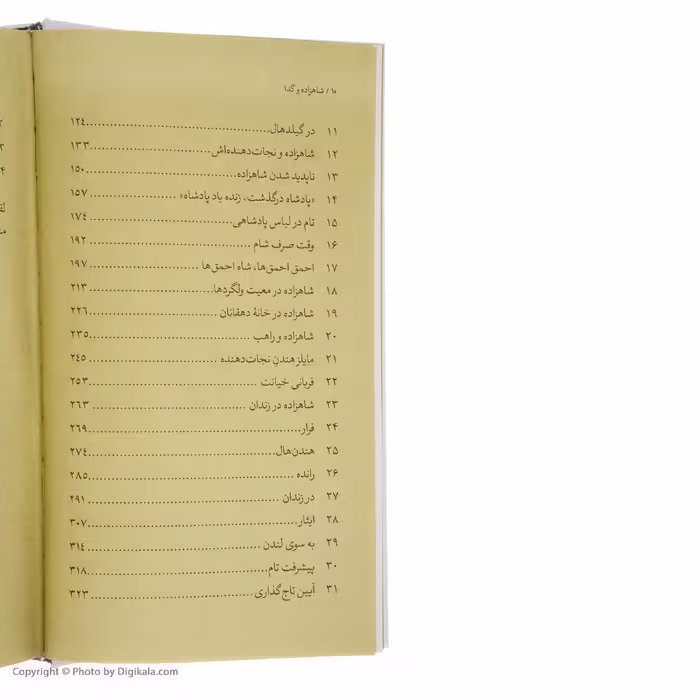 ۱۰ / شاهزاده و گدا
۱۱ در گیلدهال ۱۲۴
۱۲ شاهزاده و نجات‌دهنده‌اش ۱۳۳
۱۳ ناپدید شدن شاهزاده ۱۵۰
۱۴ «پادشاه درگذشت، زنده باد پادشاه» ۱۵۷
۱۵ تام در لباس پادشاهی ۱۷۴
۱۶ وقت صرف شام ۱۹۲
۱۷ احمق احمق‌ها، شاه احمق‌ها ۱۹۷
۱۸ شاهزاده در معیت ولگردها ۲۱۳
۱۹ شاهزاده در خانهٔ دهقانان ۲۲۶
۲۰ شاهزاده و راهب ۲۳۵
۲۱ مایلز هندن نجات‌دهنده ۲۴۵
۲۲ قربانی خیانت ۲۵۳
۲۳ شاهزاده در زندان ۲۶۳
۲۴ فرار ۲۶۹
۲۵ هندن‌هال ۲۷۴
۲۶ رانده ۲۸۵
۲۷ در زندان ۲۹۱
۲۸ ایثار ۳۰۷
۲۹ به سوی لندن ۳۱۴
۳۰ پیشرفت تام ۳۱۸
۳۱ آیین تاج‌گذاری ۳۲۳
Copyright © Photo by Digikala.com